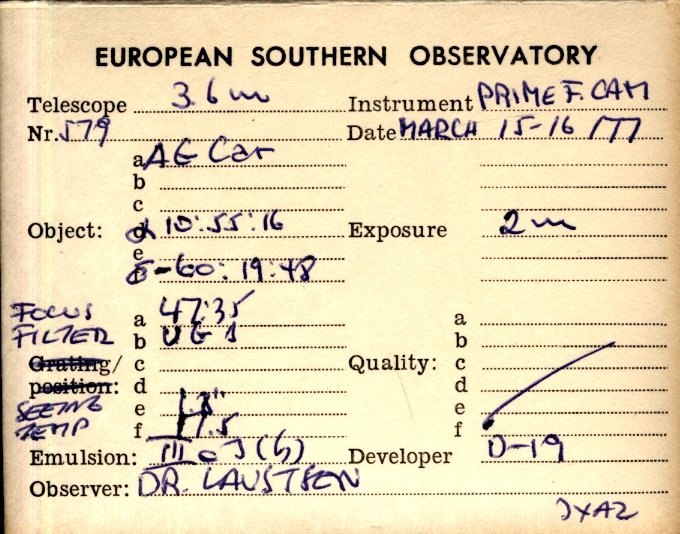 EUROPEAN SOUTHERN OBSERVATORY
Telescope 3.6 m Instrument PRIME F. CAM
Nr. 579 Date MARCH 15-16 /77
a AG Car
b
c
Object: α 10:55:16 Exposure 2 m
e
δ -60:19:48
FOCUS a 47:35 a
FILTER b UG 1 b
Grating/ c Quality: c
position: d d
SEEING e e
TEMP f f
Emulsion: III a J (b) Developer D-19
Observer: DR. LAUSTSEN